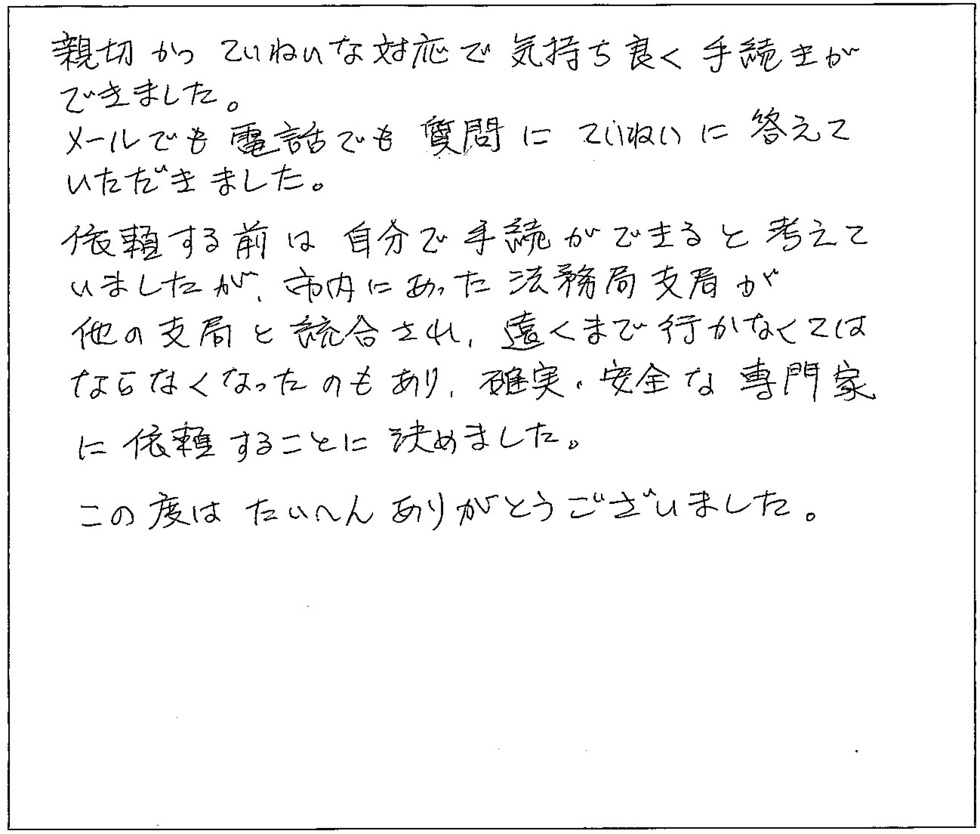 親切かつていねいな対応で気持ち良く手続きが
できました。
メールでも電話でも質問にていねいに答えて
いただきました。
依頼する前は自分で手続ができると考えて
いましたが、市内にあった法務局支局が
他の支局と統合され、遠くまで行かなくては
ならなくなったのもあり、確実・安全な専門家
に依頼することに決めました。
この度はたいへんありがとうございました。